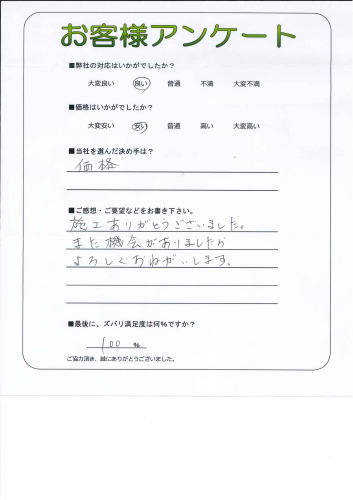 お客様アンケート
■弊社の対応はいかがでしたか？
大変良い 良い 普通 不満 大変不満
■価格はいかがでしたか？
大変安い 安い 普通 高い 大変高い
■当社を選んだ決め手は？
価格
■ご感想・ご要望などをお書き下さい。
施工ありがとうございました。
また機会がありましたら
よろしくおねがいします。
■最後に、ズバリ満足度は何％ですか？
100 ％
ご協力頂き、誠にありがとうございました。